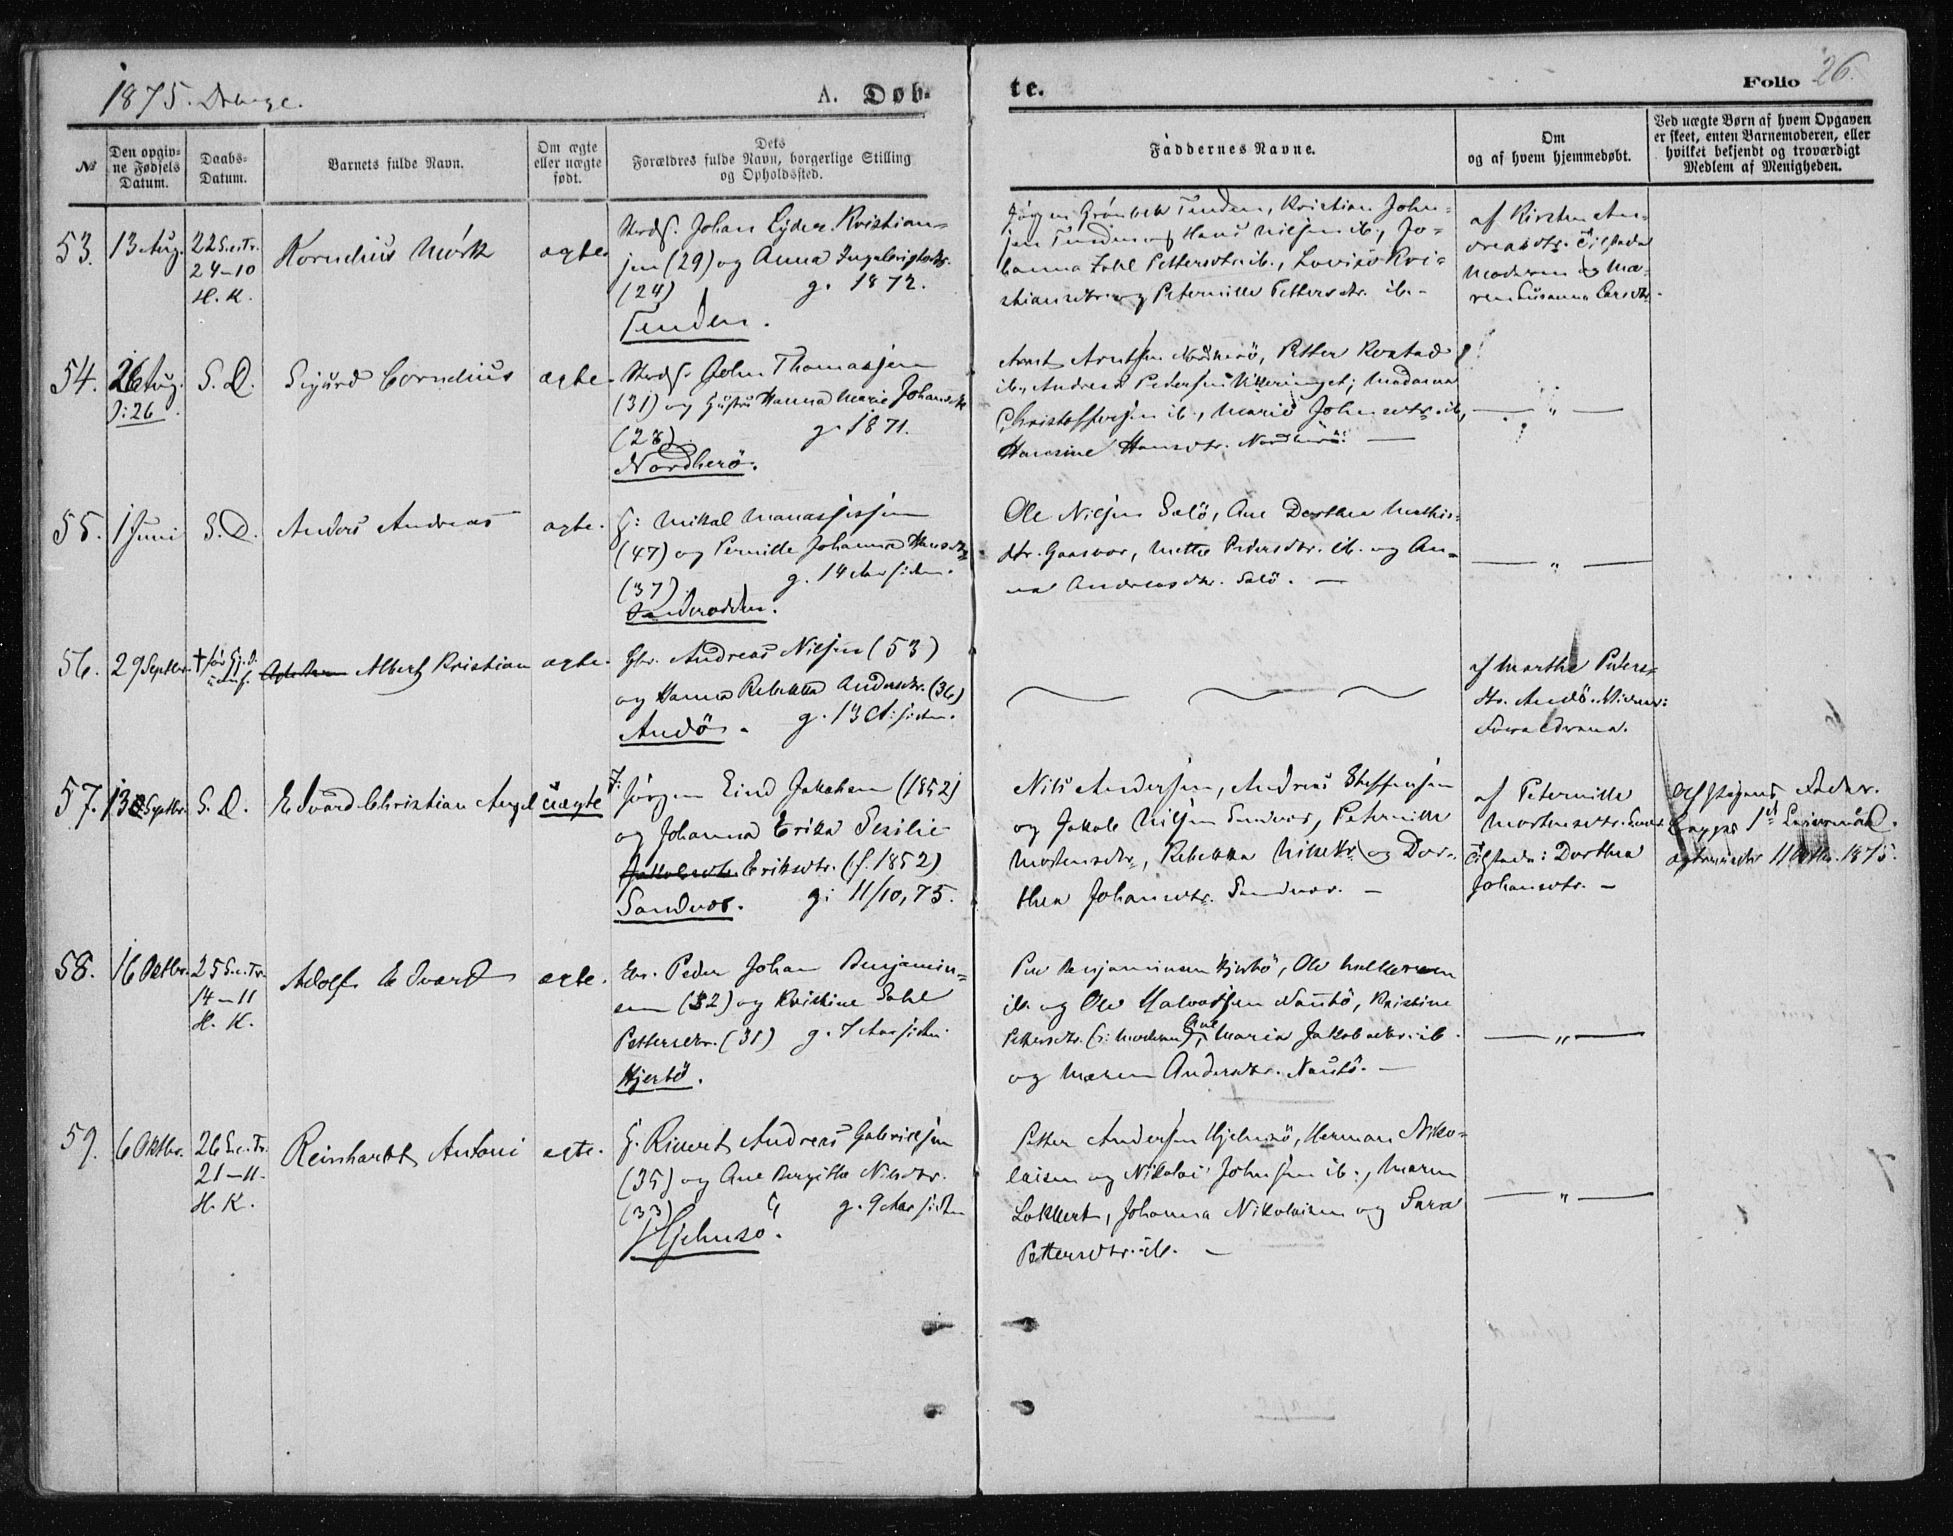 1875. Drenge.
A. Døb-
te.
Folio 26.
№
Den opgiv-
ne Fødsels
Datum.
Daabs-
Datum.
Barnets fulde Navn.
Om ægte
eller uægte
født.
Dets
Forældres fulde Navn, borgerlige Stilling
og Opholdssted.
Faddernes Navne.
Om
og af hvem hjemmedøbt.
Ved uægte Børn af hvem Opgaven
er skeet, enten Barnemoderen, eller
hvilket bekjendt og troværdigt
Medlem af Menigheden.
53.
13 Aug.
22 S. e. Tr.
24-10
H. K.
Kornelius Mörk
ægte.
Johan Eyder Kristian-
sen (29) og Anna Ingebrigtsdtr.
(24) g. 1872.
Tenden.
Jörgen Grönbek Tenden, Kristian John-
sen Tenden og Hans Nilsen ib., Jo-
hanna Zahl Pettersdtr. ib., Lovise Kri-
stiansdtr. og Peternille Pettersdtr. ib.
af Kirsten An-
dreasdtr. Tilstede
Moderen og Ma-
ren Susanna Larsdtr.
54.
26 Aug.
ɔ: 26
S. D.
Sigurd Cornelius
ægte.
John Thomassen
(31) og Hanna Marie Johansdtr.
(28) g. 1871.
Nordherö.
Arnt Arntsen Nordherö, Petter
ib., Andreas Pedersen
Christoffersen ib., Marie Johnsdtr. ib.,
Hansine Hansdtr. Nordherö. —
— " —
55.
1 Juni
S. D.
Anders Andreas
ægte.
G: Mikal Manassissen
(47) og Pernille Johanna Hansdtr.
(37) g. 14 Aar siden.
Ole Nilsen Salö, Ane Dorthea Mathis-
dtr. Gaasvær, Mette Pedersdtr. ib. og An-
na Andreasdtr. Salö. —
— " —
56.
29 Septbr.
Albert Kristian
ægte.
Gbr. Andreas Nilsen (53)
og Hanna Rebekka Andersdtr. (36)
Andö. g. 13 A. siden.
af Marthe Peders-
dtr. Andö.
Forældrene.
57.
Septbr.
S. D.
Edvard Christian Angel
uægte
Jörgen Eind Jakobsen (1852)
og Johanna Erika Sesilie
Jakobsdtr. Eriksdtr. (f. 1852)
Sandvær. g: 11/10, 75.
Nils Andersen, Andreas Steffensen
og Jakob Nilsen Sandvær, Peternille
Mortensdtr., Rebekka Nilsdtr. og Dor-
thea Johansdtr. Sandvær. —
af Peternille
Mortensdtr.
Tilstede: Dorthea
Johansdtr. —
Fader.
11 Oktbr. 1875.
58.
16 Oktbr.
25 S. e. Tr.
14-11
H. K.
Adolf Edvard
ægte.
Peder Johan Benjamin-
sen (32) og Kristine Zahl
Pettersdtr. (31) g. 7 Aar siden
Hjertö.
Benjaminsen Hjertö, Ole
ib. og Ole Halvorsen Nautö, Kristine
Pettersdtr. (ɔ: moderen), Ane Maria Jakobsdtr. ib.
og Maren Andersdtr. Nautö. —
— " —
59.
6 Oktbr.
26 S. e. Tr.
21-11.
H. K.
Reinhardt Antoni
ægte.
G. Rikert Andreas Gabrielsen
(35) og Ane Bergitte Nilsdtr.
(33) g. 9 Aar siden
Hjelmsö.
Petter Andersen Hjelmsö, Herman Niko-
laisen og Nikolai Johnsen ib., Maren
Lokkert, Johanna Nikolaisen og Sara
Pettersdtr. ib. —
— " —